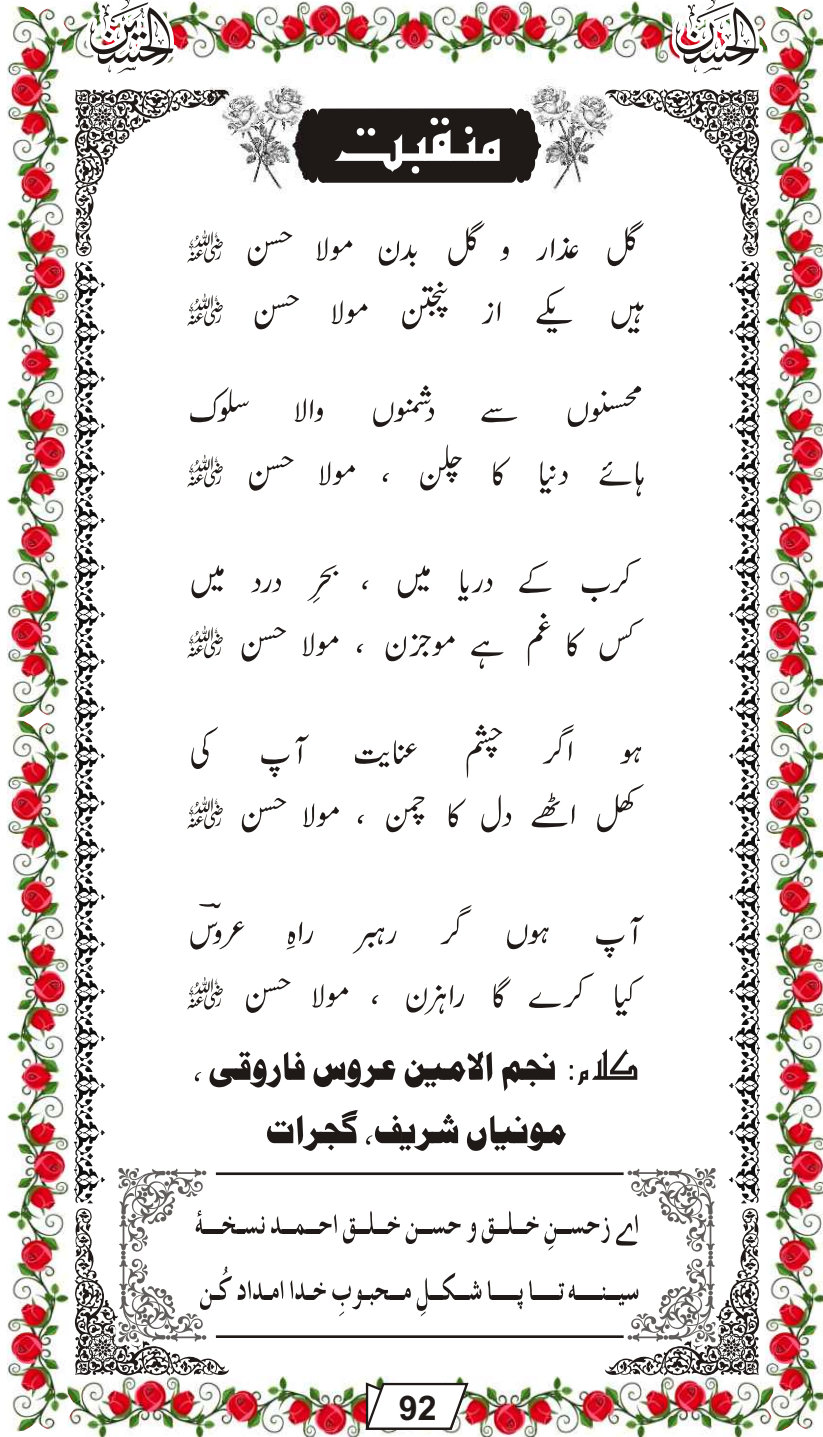 الحسن الحسن
منقبت
گل عذار و گل بدن مولا حسن رضی اللہ عنہ
ہیں یکے از پنجتن مولا حسن رضی اللہ عنہ
محسنوں سے دشمنوں والا سلوک
ہائے دنیا کا چلن ، مولا حسن رضی اللہ عنہ
کرب کے دریا میں ، بحرِ درد میں
کس کا غم ہے موجزن ، مولا حسن رضی اللہ عنہ
ہو اگر چشم عنایت آپ کی
کھل اٹھے دل کا چمن ، مولا حسن رضی اللہ عنہ
آپ ہوں گر رہبر راہِ عروسؔ
کیا کرے گا راہزن ، مولا حسن رضی اللہ عنہ
کلام: نجم الامین عروس فاروقی ،
مونیاں شریف، گجرات
اے زحسنِ خلق و حسن خلق احمد نسخۂ
سینہ تا پا شکلِ محبوبِ خدا امداد کُن
92